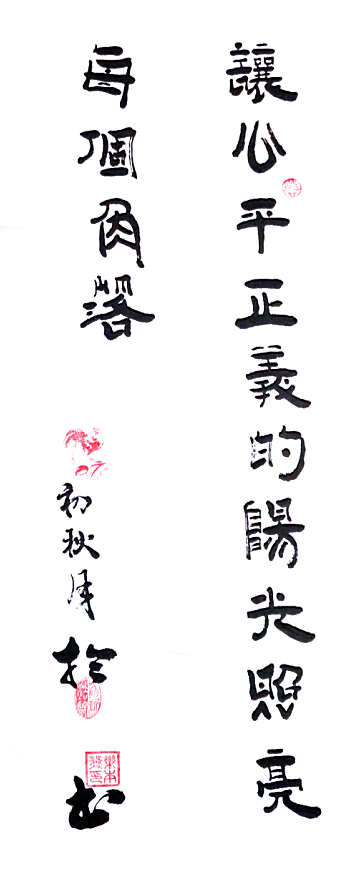 讓公平正義的陽光照亮
每個角落
初秋